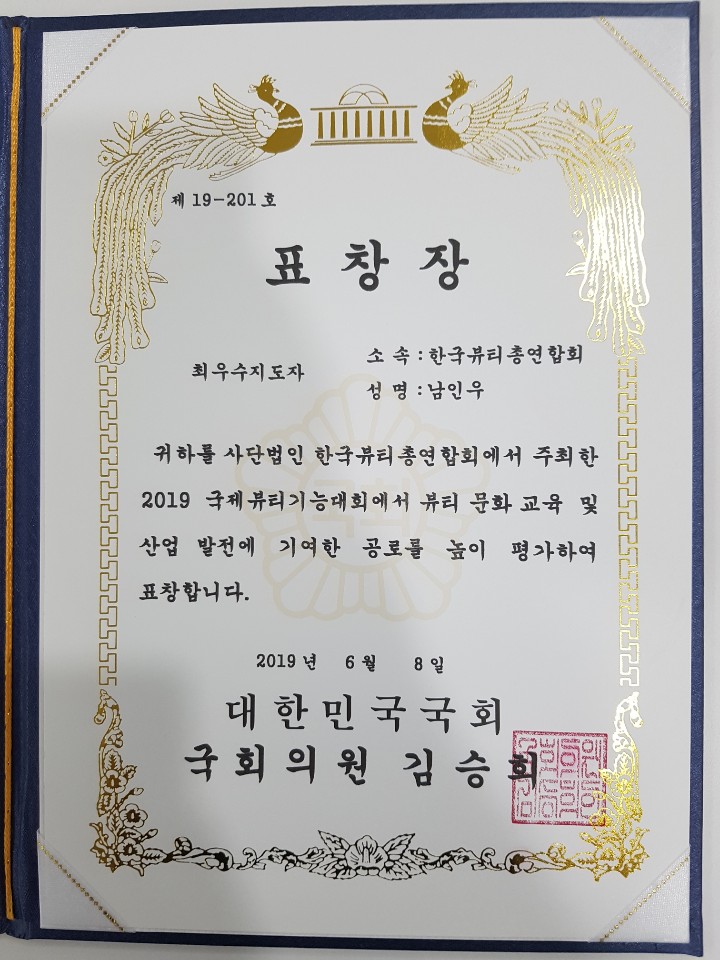 제 19-201 호
표 창 장
최우수지도자
소 속 : 한국뷰티총연합회
성 명 : 남인우
귀하를 사단법인 한국뷰티총연합회에서 주최한
2019 국제뷰티기능대회에서 뷰티 문화 교육 및
산업 발전에 기여한 공로를 높이 평가하여
표창합니다.
2019 년 6 월 8 일
대 한 민 국 국 회
국 회 의 원 김 승 희